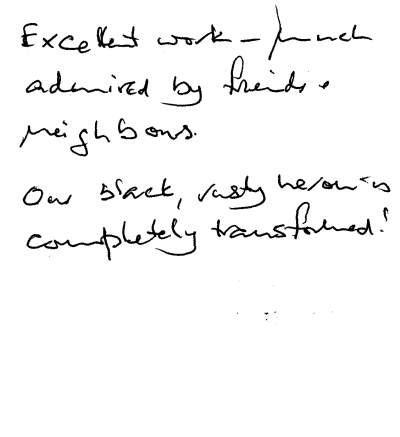 Excellent work – much
admired by friends &
neighbours.
Our black, rusty heron is
completely transformed!